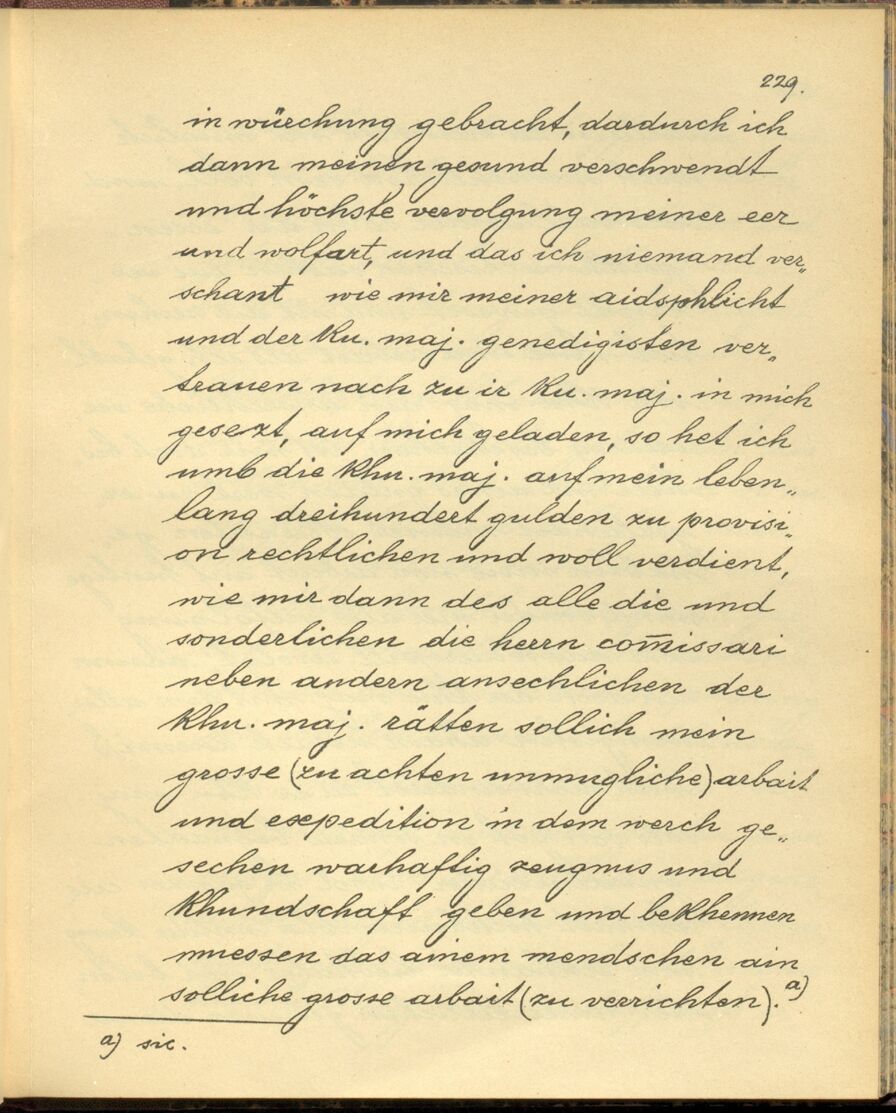 229.
in würchung gebracht, dardurch ich
dann meinen gesund verschwendt
und höchste vervolgung meiner eer
und wolfart, und das ich niemand ver„
schant wie mir meiner aidsphlicht
und der Ku. maj. genedigisten ver„
trauen nach zu ir Ku. maj. in mich
gesezt, auf mich geladen, so het ich
umb die Khu. maj. auf mein leben„
lang dreihundert gulden zu provisi„
on rechtlichen und woll verdient,
wie mir dann des alle die und
sonderlichen die herrn com̄issari
neben andern ansechlichen der
Khu. maj. rätten sollich mein
grosse (zu achten unmugliche) arbait
und expedition in dem werch ge„
sechen warhaftig zeugnus und
Khundschaft geben und bekhennen
muessen das ainem mendschen ain
solliche grosse arbait (zu verrichten). a)
a) sic.